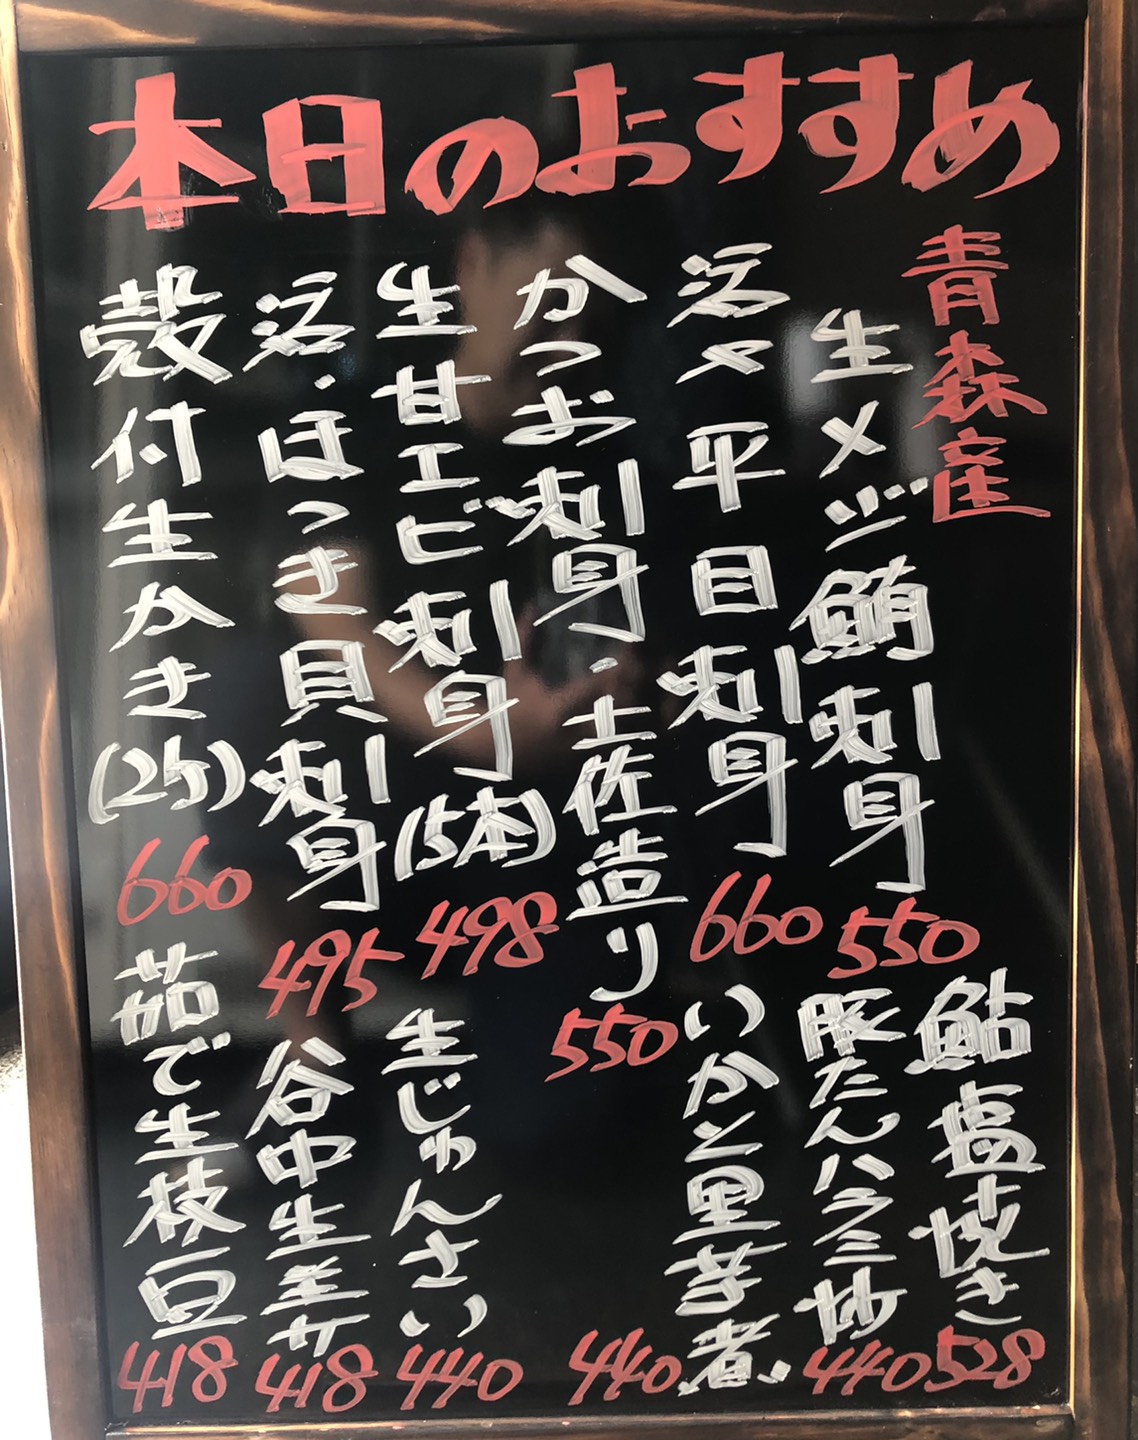 本日のおすすめ
青森産
生メジ鮪刺身 550
活〆平目刺身 660
かつお刺身・土佐造り 550
生甘エビ刺身(5本) 498
活・ほっき貝刺身 495
殻付生かき(2ヶ) 660
鮎塩焼き 528
豚たんハラミ炒 440
いかと里芋煮 440
生じゅんさい 440
谷中生姜 418
茹で生枝豆 418